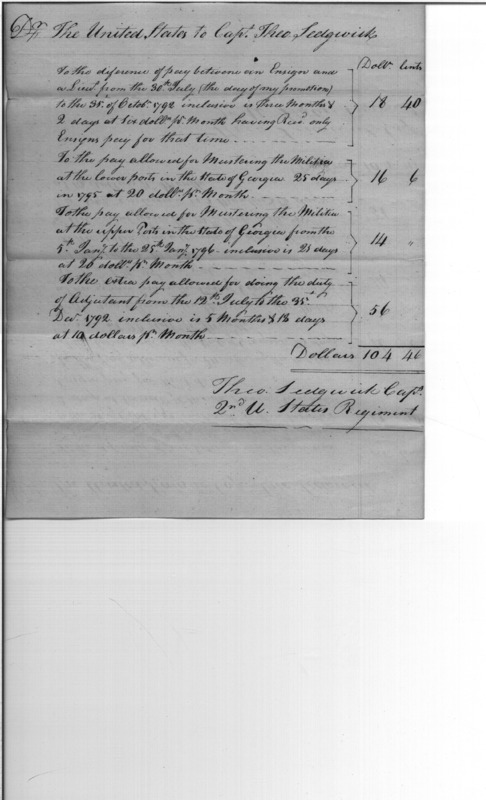 Dr The United States to Capt. Theo. Sedgwick
Dollrs. Cents
To the diference of pay between an Ensign and
a Lieut from the 30th July (the day of my promotion)
to the 31st of Octobr. 1792 inclusive is Three Months &
2 days at Six dollrs. pr. Month having Recd. only
Ensigns pay for that time 18 40
To the pay allowed for Mustering the Militia
at the lower ports in the State of Georgia 25 days
in 1795 at 20 dollrs. pr. Month 16 6
To the pay allowed for Mustering the Militia
at the upper Ports in the State of Georgia from the
5th Jany. to the 25th Jany. 1796 inclusive is 21 days
at 20 dollrs. pr. Month 14 "
To the extra pay allowed for doing the duty
of Adjutant from the 12th July to the 31st
Decr. 1792 inclusive is 5 Months & 18 days
at 10 dollars pr. Month 56
Dollars 104 46
Theo. Sedgwick Capt.
2nd U. States Regiment